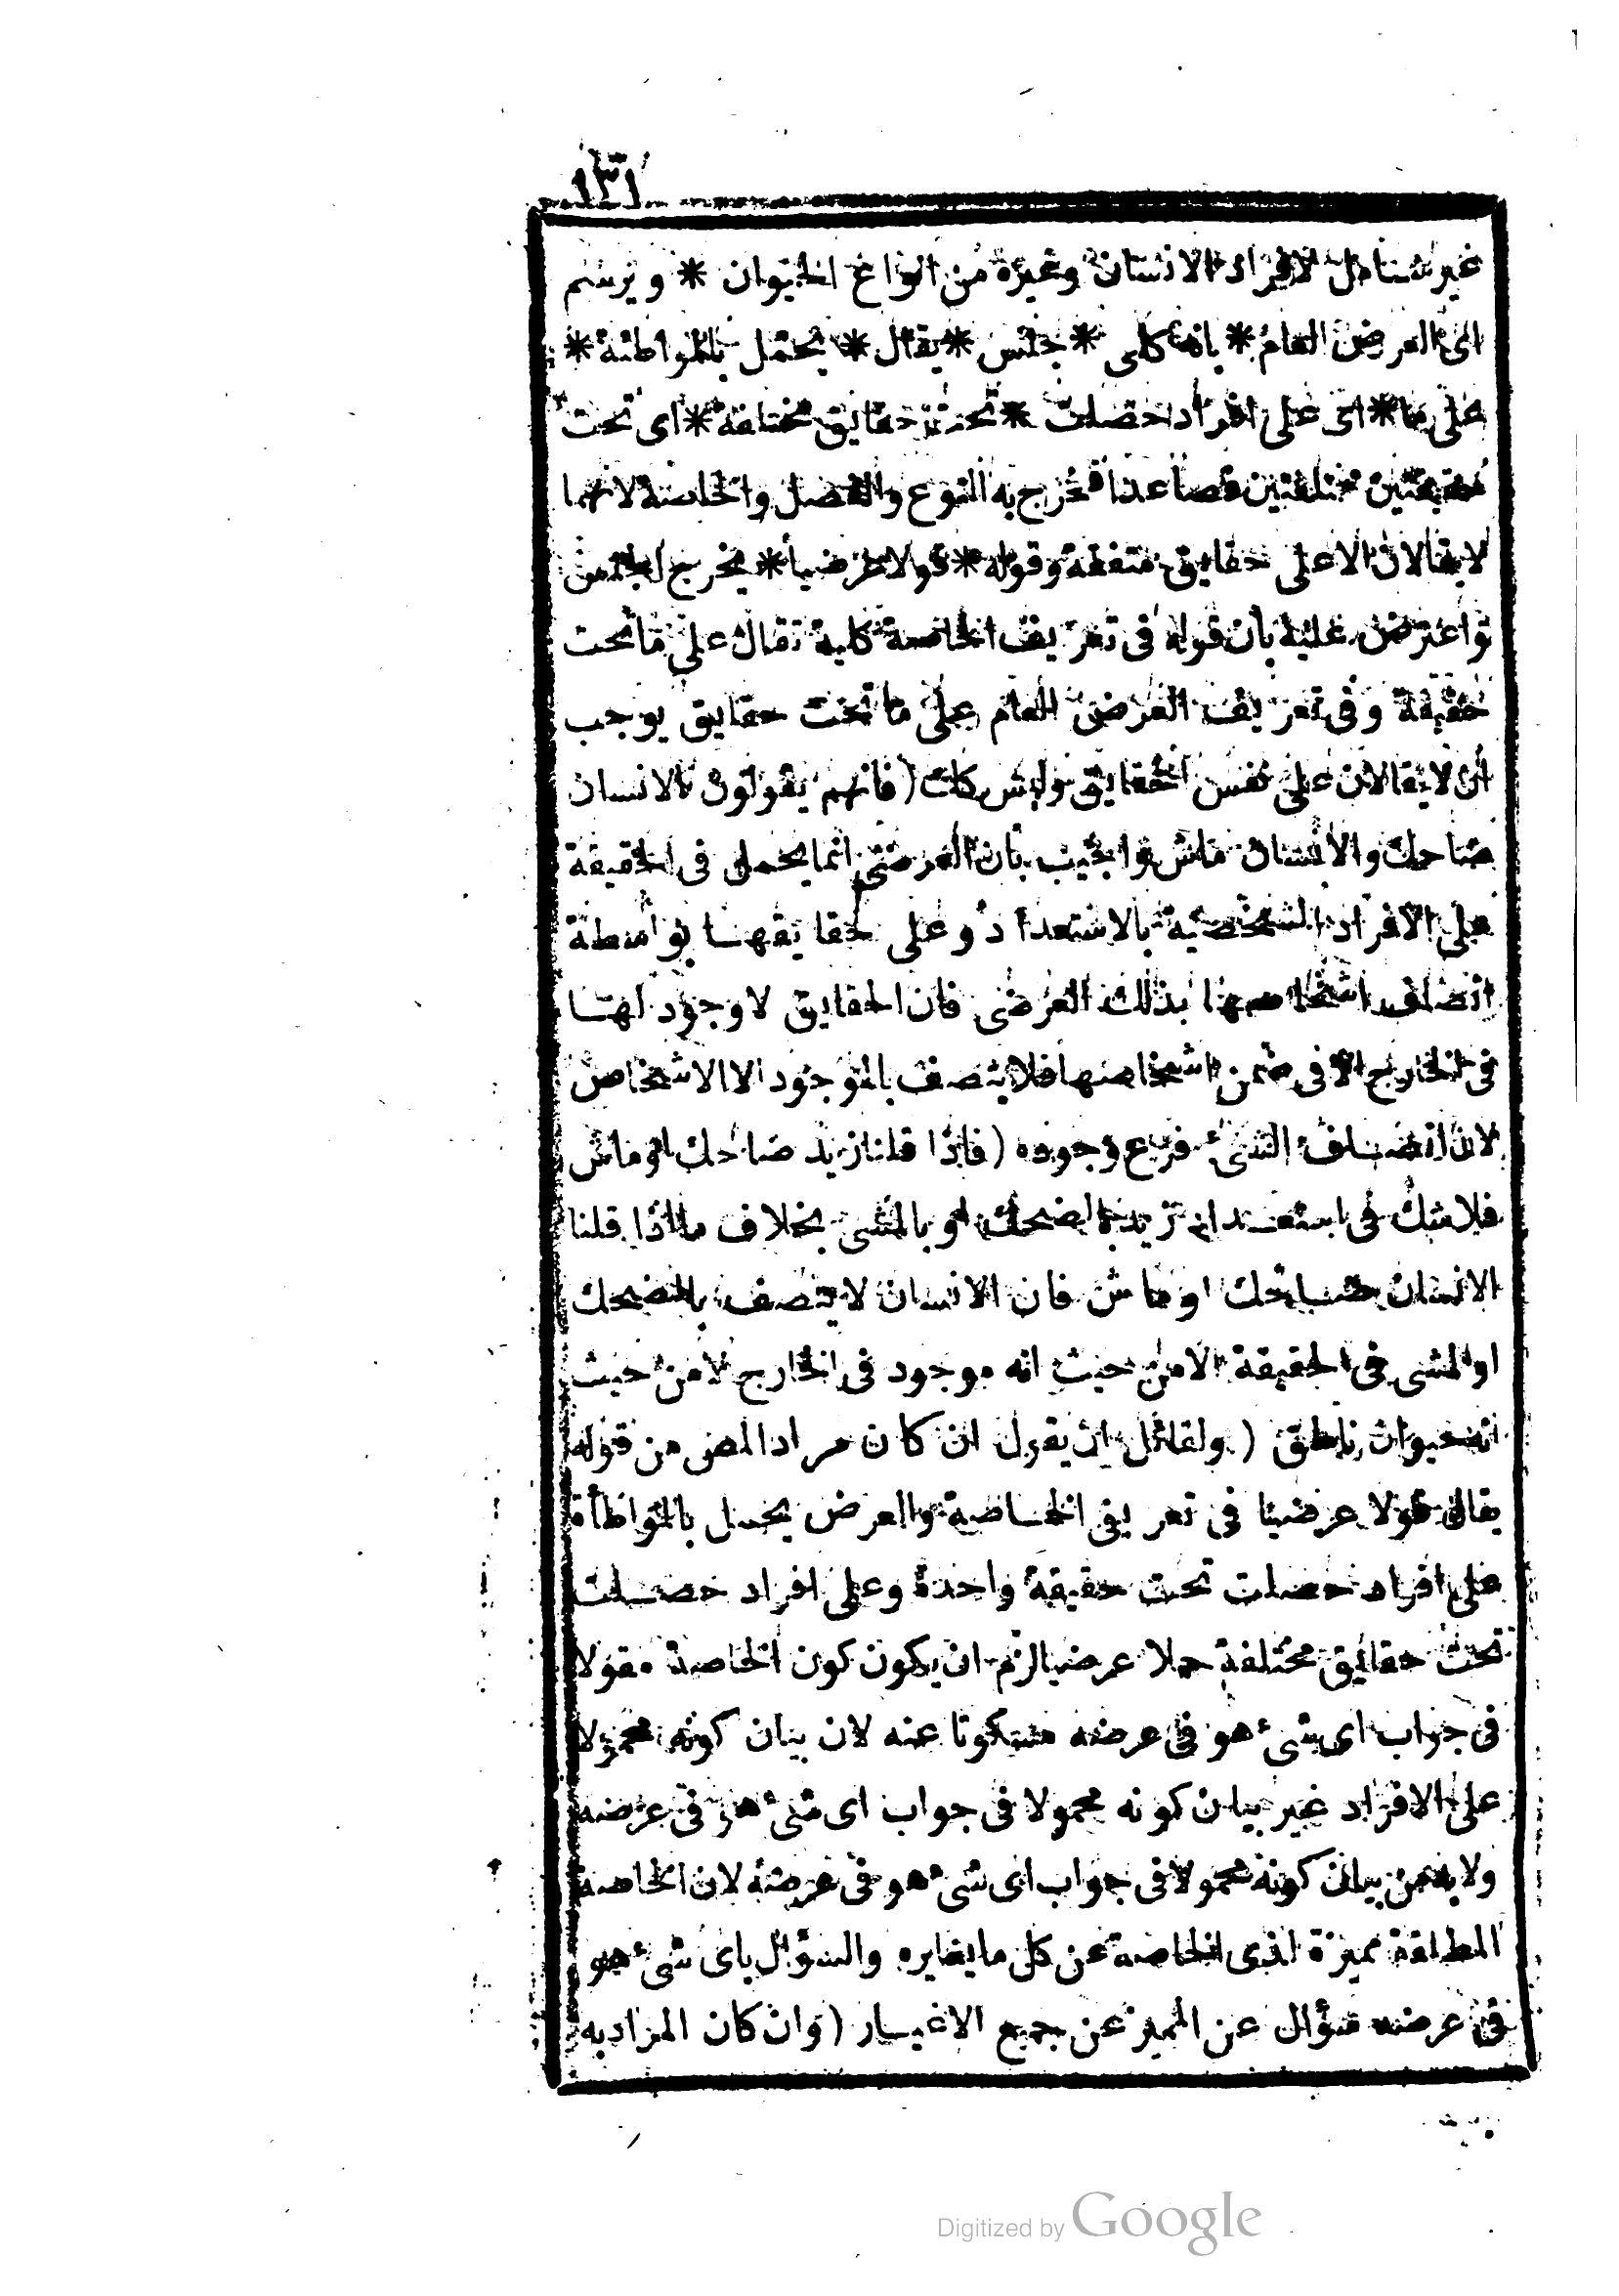 ١٣١
غير شامل لافراد الانسان وغيره من انواع الحيوان * ويرسم
اى العرض العام * بانه كلى * جنس * يقال * يحتمل بالمواطئة *
على ما * اى على افراد حصلت * تحت حقايق مختلفة * اى تحت
حقيقتين مختلفتين فصاعدا فخرج به النوع والفصل والخاصة لانهما
لا يقالان الا على حقايق متفقة وقوله * قولا عرضيا * يخرج الجنس
واعترض عليه بأن قوله فى تعريف الخاصة كلية تقال على ما تحت
حقيقة وفى تعريف العرض العام على ما تحت حقايق يوجب
أن لا يقالان على نفس الحقايق وليس كك (فانهم يقولون الانسان
ضاحك والانسان ماش واجيب بان العرضى انما يحمل فى الحقيقة
على الافراد الشخصية بالاستعداد وعلى حقايقهـا بواسطة
اتصاف اشخاصها بذلك العرضى فان الحقايق لا وجود لهـا
فى الخارج الا فى ضمن اشخاصها فلا يتصف بالموجود الا الاشخاص
لان اتصـاف الشئ فرع وجوده (فاذا قلنا زيد ضاحك او ماش
فلا شك فى استعـداد زيد بالضحك او بالمشى بخلاف ما اذا قلنا
الانسان ضـاحك او ماش فان الانسان لا يتصف بالضحك
او المشى فى الحقيقة الا من حيث انه موجود فى الخارج لا من حيث
انه حيوان ناطق ( ولقائل ان يقول ان كان مراد المص من قوله
يقال قولا عرضيا فى تعريق الخـاصة والعرض يحمل بالمواطأة
على افراد حصلت تحت حقيقة واحدة وعلى افراد حصـلت
تحت حقايق مختلفة حملا عرضيا لزم ان يكون كون الخاصة مقولا
فى جواب اى شئ هو فى عرضه مسكوتا عنه لان بيان كونه محمولا
على الافراد غير بيان كونه محمولا فى جواب اى شئ هو فى عرضه
ولابد من بيان كونه محمولا فى جواب اى شئ هو فى عرضه لان الخاصة
المطلقة مميزة لذى الخاصة عن كل ما يغايره والسؤال باى شئ هو
فى عرضه سؤال عن المميز عن جميع الاغيـار (وان كان المراد به
Digitized by Google